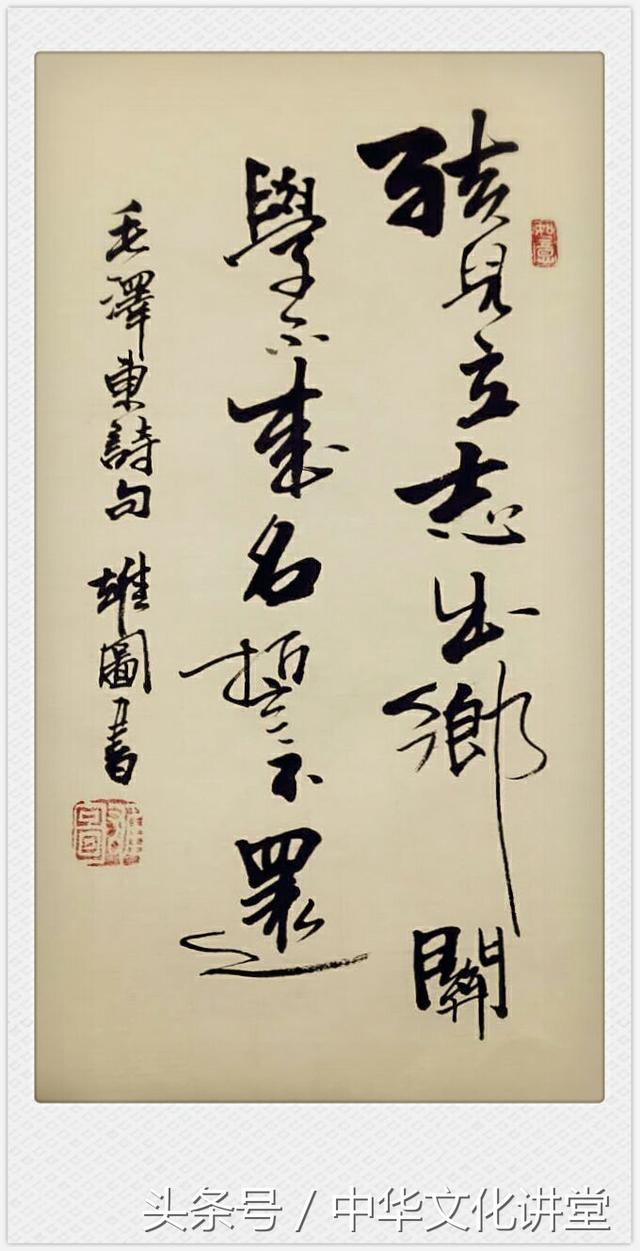 如意
孩兒立志出鄉關
學不成名誓不還
毛澤東詩句 雄圖書
头条号 / 中华文化讲堂